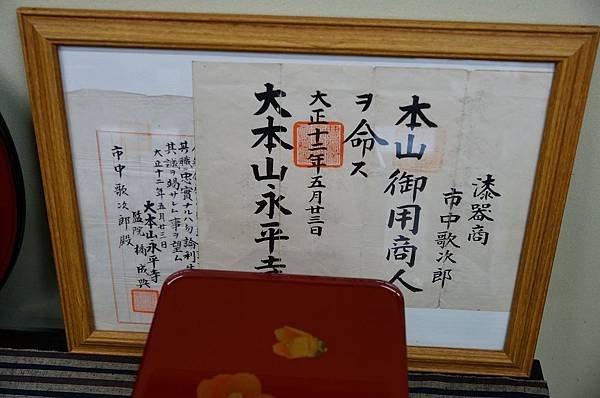 漆器商
市中歌次郎
本山御用商人
ヲ命ス
大正十二年五月廿三日
大本山永平寺
其職ニ忠實ナルハ勿論利生
其誠ヲ竭サレム事ヲ望ム
大正十二年五月廿三日
大本山永平寺
監院橋成典
市中歌次郎殿